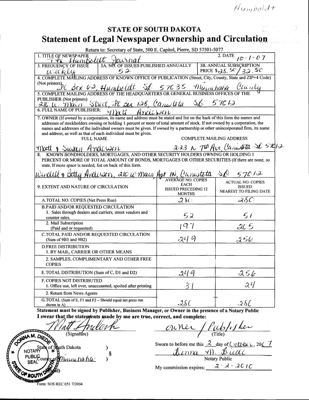 Humboldt
STATE OF SOUTH DAKOTA
Statement of Legal Newspaper Ownership and Circulation
Return to: Secretary of State, 500 E. Capitol, Pierre, SD 57501-5077
1. TITLE OF NEWSPAPER
The Humboldt Journal
2. DATE
10-1-07
3. FREQUENCY OF ISSUE
Weekly
3A. NO. OF ISSUES PUBLISHED ANNUALLY
52
3B. ANNUAL SUBSCRIPTION
PRICE
4. COMPLETE MAILING ADDRESS OF KNOWN OFFICE OF PUBLICATION (Street, City, County, State and ZIP+4 Code)
(Not printers)
Humboldt Sd 57035 Minnehaha County
5. COMPLETE MAILING ADDRESS OF THE HEADQUARTERS OF GENERAL BUSINESS OFFICES OF THE
PUBLISHER (Not printers)
Canistota Sd 57012
6. FULL NAME OF PUBLISHER:
Matt Anderson
7. OWNER (If owned by a corporation, its name and address must be stated and also immediately thereafter the names and
addresses of stockholders owning or holding 1 percent or more of total amount of stock. If not owned by a corporation, the
names and addresses of the individual owners must be given. If owned by a partnership or other unincorporated firm, its name
and address, as well as that of each individual must be given.
FULL NAME
COMPLETE MAILING ADDRESS
Matt Anderson
Canistota Sd 57012
8. KNOWN BONDHOLDERS, MORTGAGES, AND OTHER SECURITY HOLDERS OWNING OR HOLDING 1
PERCENT OR MORE OF TOTAL AMOUNT OF BONDS, MORTGAGES OR OTHER SECURITIES (If there are none, so
state. If more space is needed, list on back of this form.
Anderson, Canistota Sd 57012
9. EXTENT AND NATURE OF CIRCULATION
AVERAGE NO. COPIES
EACH
ISSUED PRECEDING 12
MONTHS
ACTUAL NO. COPIES
ISSUED
NEAREST TO FILING DATE
A.TOTAL NO. COPIES (Net Press Run)
280 280
B.PAID AND/OR REQUESTED CIRCULATION
1. Sales through dealers and carriers, street vendors and
counter sales.
52 51
2. Mail Subscription
(Paid and or requested)
197 205
C.TOTAL PAID AND/OR REQUESTED CIRCULATION
(Sum of 9B1 and 9B2)
249 256
D.FREE DISTRIBUTION
1. BY MAIL, CARRIER OR OTHER MEANS
2. SAMPLES, COMPLIMENTARY AND OTHER FREE
COPIES
E. TOTAL DISTRIBUTION (Sum of C, D1 and D2)
249 256
F. COPIES NOT DISTRIBUTED
1. Office use, left over, unaccounted, spoiled after printing
31 24
2. Return from News Agents
G.TOTAL (Sum of E, F1 and F2 – Should equal net press run
shown in A)
280 280
Statement must be signed by Publisher, Business Manager, or Owner in the presence of a Notary Public
I swear that the statements made by me are true, correct, and complete:
Matt Anderson
(Signature)
owner / Publisher
(Title)
State of South Dakota
County of Minnehaha
Sworn to before me this 2 day of October, 2007
Notary Public
My commission expires: 2-2-2010
NOTARY
PUBLIC
SEAL
SOUTH DAKOTA
Form: SOS REC 051 7/2004